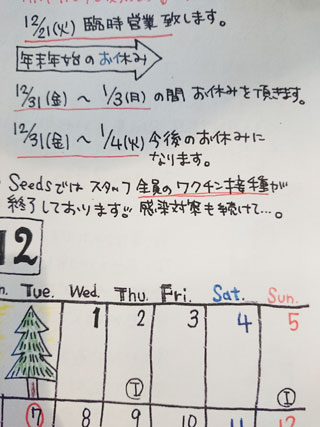 12/21(火) 臨時営業致します。
年末年始のお休み
12/31(金) ～ 1/3(月) の間 お休みを頂きます。
12/31(金) ～ 1/4(火) 今後のお休みに
なります。
Seedsでは スタッフ 全員のワクチン接種が
終了しております!! 感染対策も続けて…。
12
n. Tue. Wed. Thu. Fri. Sat. Sun.
1 2 3 4 5
I I
7 8 9 10 11 12